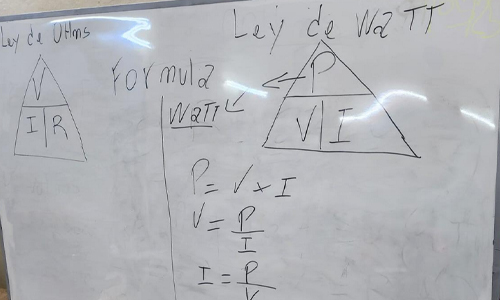 Ley de OHms
V
I | R
Ley de WaTT
P
V | I
Formula
WaTT
P = V x I
V = P / I
I = P / V